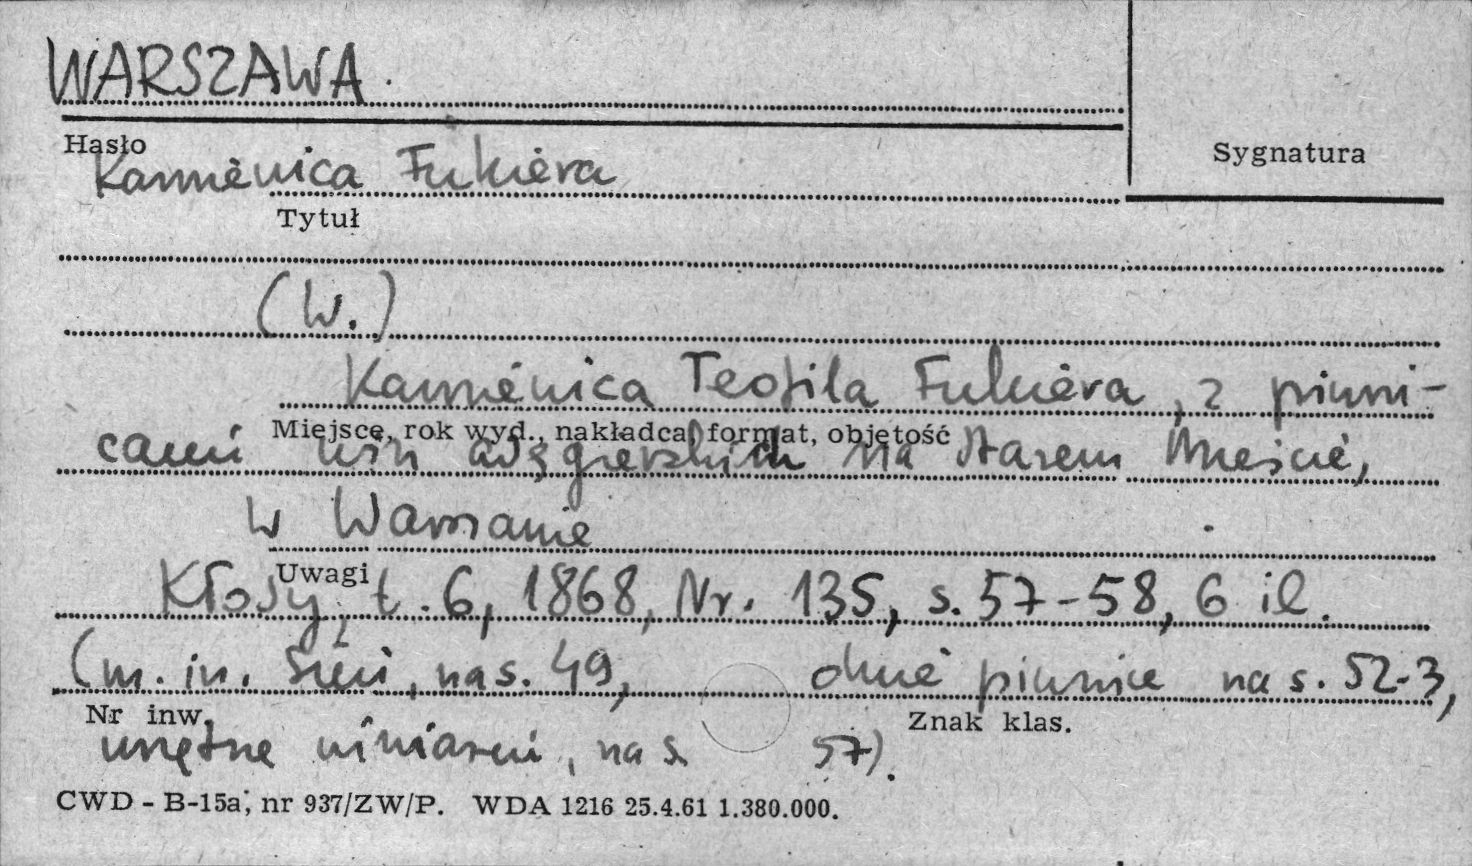 WARSZAWA.
Hasło
Sygnatura
Kamienica Fukiera
Tytuł
(W.)
Kamienica Teofila Fukiera, z piwni-
Miejsce, rok wyd., nakładca, format, objętość
cami win węgierskich na Starem Mieście,
w Warszawie
Uwagi
Kłosy, t. 6, 1868, Nr. 135, s. 57-58, 6 il.
(m. in. Sień, na s. 49, dwie piwnice na s. 52-3,
Nr inw.
Znak klas.
wnętrze winiarni, na s. 57).
CWD - B-15a, nr 937/ZW/P. WDA 1216 25.4.61 1.380.000.